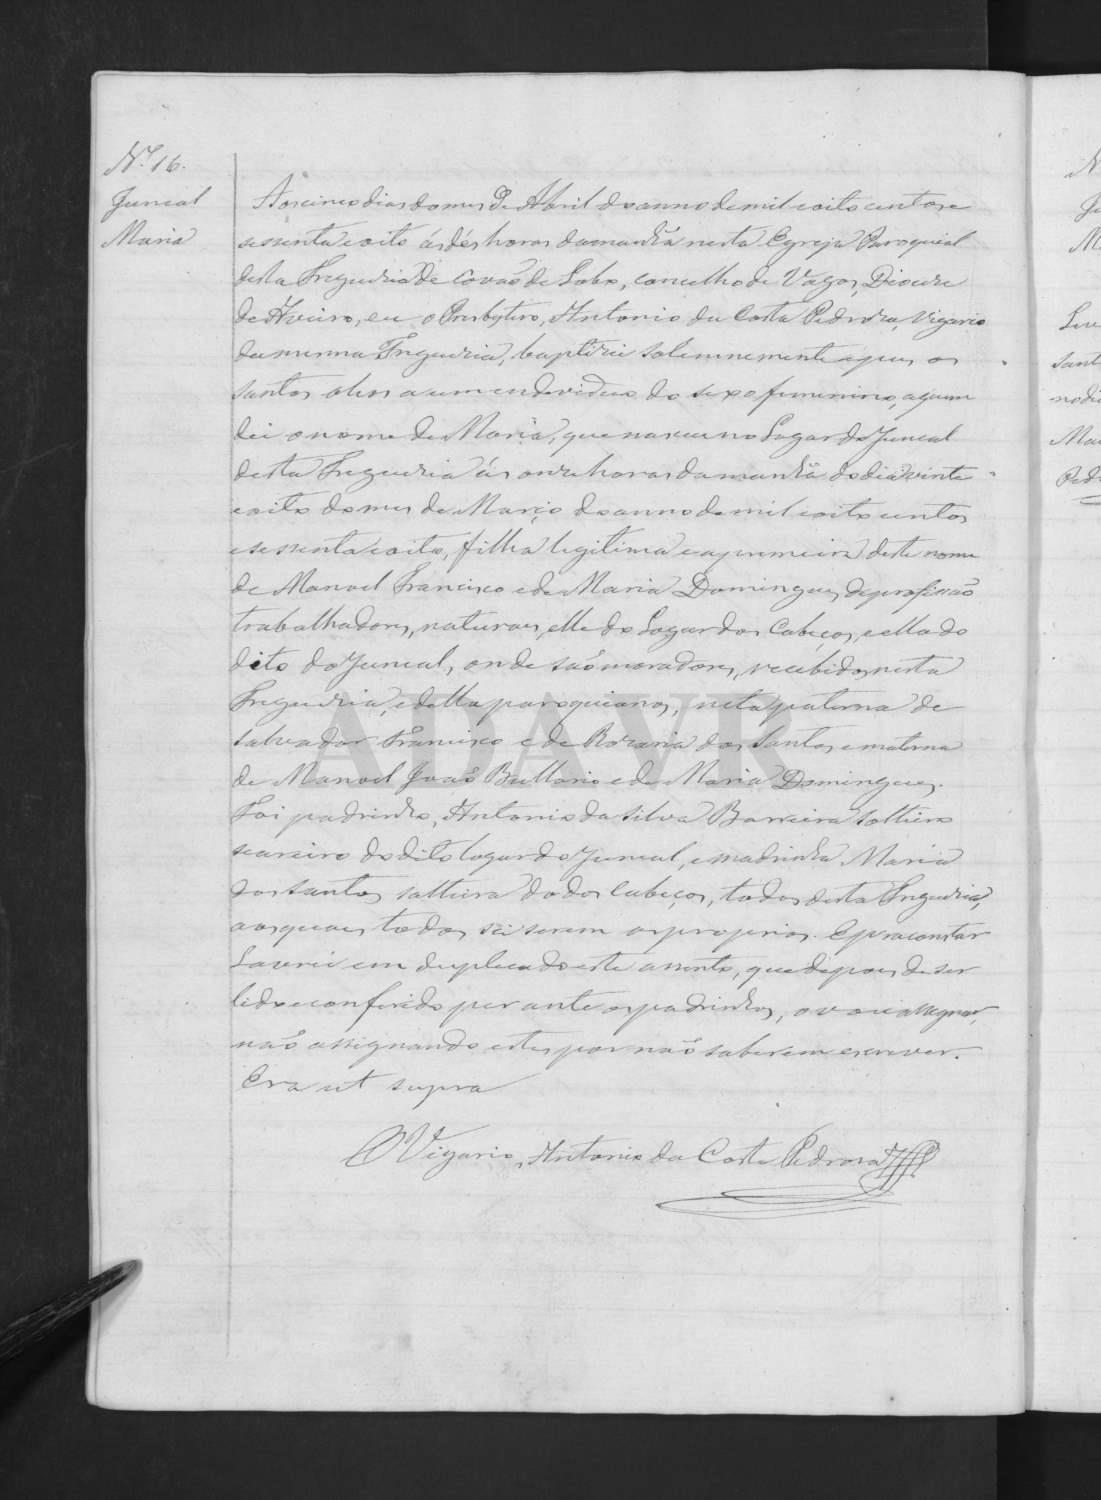 Nº 16.
Juncal
Maria
Aos cinco dias do mes de Abril do anno de mil e oito centos e
sessenta e oito ás dés horas da manhã nesta Egreja Paroquial
desta Freguezia de Covaõ do Lobo, concelho de Vagos, Diocese
de Aveiro, eu o Presbytero, Antonio da Costa Pedrosa, Vigario
da mesma Freguezia, baptizei solemnemente e pus os
santos oleos a um endeviduo do sexo femenino, a quem
dei o nome de Maria, que nasceu no Lugar do Juncal
desta Freguezia ás onze horas da manhã do dia vinte
e oito do mes de Março do anno de mil e oito centos
e sessenta e oito, filha legitima e a primeira deste nome
de Manoel Francisco e de Maria Domingues, de profissaõ
trabalhadores, naturaes, elle do Lugar dos Cabeços, e ella do
dito do Juncal, onde saõ moradores, recebidos nesta
Freguezia, e della paroquianos, neta paterna de
Salvador Francisco e de Rozaria dos Santos e materna
de Manoel Joaõ e de Maria Domingues.
Foi padrinho, Antonio da Silva Barreira solteiro
seareiro do dito lugar do Juncal, e madrinha Maria
dos Santos solteira do dos Cabeços, todos desta Freguezia,
aos quaes todos sei serem os proprios. E pra constar
Lavrei em duplicado este assento, que depois de ser
lido e conferido perante os padrinhos, o vou assignar,
naõ assignando estes por naõ saberem escrever.
Era ut supra
O Vigario, Antonio da Costa Pedrosa
ADAVR